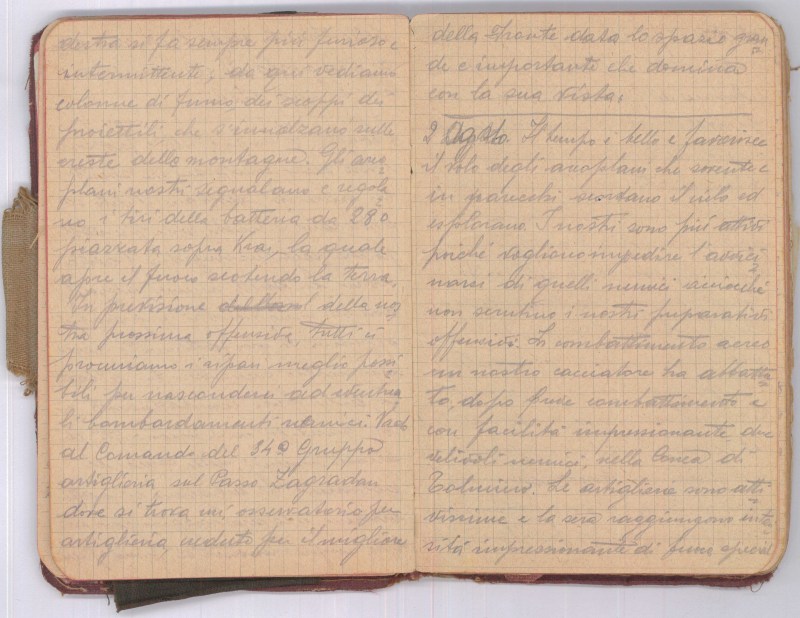 destra si fa sempre più furioso e
intermittente; da qui vediamo
colonne di fumo, dei scoppi dei
proiettili che s'innalzano sulle
creste delle montagne. Gli aro
plani nostri signalano e regola
no i tiri della batteria da 280
piazzata sopra Kras, la quale
apre il fuoco scotendo la terra.
In previsione della nos
tra prossima offensiva, tutti ci
procuriamo i ripari meglio possi
bili per nasconderci ad eventua
li bombardamenti nemici. Vado
al Comando del 34º Gruppo
artiglieria sul Passo Zagradan
dove si trova un osservatorio per
artiglieria, veduto fra il migliore
della fronte data lo spazio gran
de e importante che domina
con la sua vista.
2 Agosto. Il tempo è bello e favorisce
il volo degli aroplani che sovente e
in parecchi scortano il cielo ed
esplorano. I nostri sono più attivi
poiché vogliono impedire l'avvici
narsi di quelli nemici acciocché
non scrutino i nostri preparativi
offensivi. In combattimento aereo
un nostro cacciatore ha abbattu
to, dopo breve combattimento e
con facilità impressionante due
velivoli nemici, nella Conca di
Tolmino. Le artiglierie sono atti
vissime e la sera raggiungono inten
sità impressionante di fuoco special